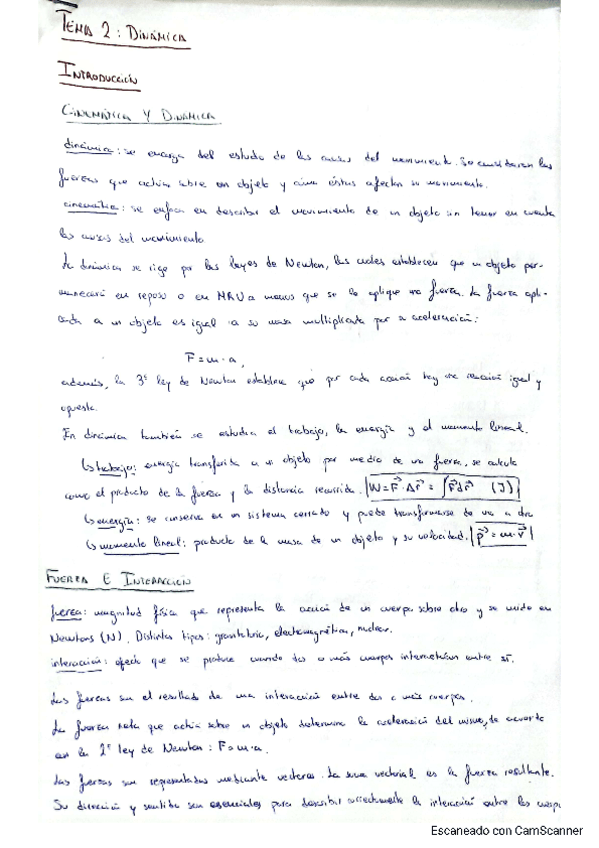 TEMA 2: DINÁMICA
INTRODUCCIÓN
CINEMÁTICA Y DINÁMICA
dinámica: se encarga del estudio de las causas del movimiento. Se consideran las
fuerzas que actúan sobre un objeto y cómo éstas afectan su movimiento.
cinemática: se enfoca en describir el movimiento de un objeto sin tener en cuenta
las causas del movimiento.
La dinámica se rige por las leyes de Newton, las cuales establecen que un objeto per-
manecerá en reposo o en MRU a menos que se le aplique una fuerza. La fuerza apli-
cada a un objeto es igual a su masa multiplicada por su aceleración:
F = m · a,
además, la 3ª ley de Newton establece que por cada acción hay una reacción igual y
opuesta.
En dinámica también se estudia el trabajo, la energía y el momento lineal.
↳ trabajo: energía transferida a un objeto por medio de una fuerza, se calcula
como el producto de la fuerza y la distancia recorrida. W = F⃗ · Δr⃗ = ∫F⃗dr⃗ (J)
↳ energía: se conserva en un sistema cerrado y puede transformarse de una a otra
↳ momento lineal: producto de la masa de un objeto y su velocidad. p⃗ = m · v⃗
FUERZA E INTERACCIÓN
fuerza: magnitud física que representa la acción de un cuerpo sobre otro y se mide en
Newtons (N). Distintos tipos: gravitatoria, electromagnética, nuclear.
interacción: efecto que se produce cuando dos o más cuerpos interactúan entre sí.
Las fuerzas son el resultado de una interacción entre dos o más cuerpos.
La fuerza neta que actúa sobre un objeto determina la aceleración del mismo, de acuerdo
en la 2ª ley de Newton: F = m · a.
Las fuerzas son representadas mediante vectores. La suma vectorial es la fuerza resultante.
Su dirección y sentido son esenciales para describir correctamente la interacción entre los cuerpo
Escaneado con CamScanner